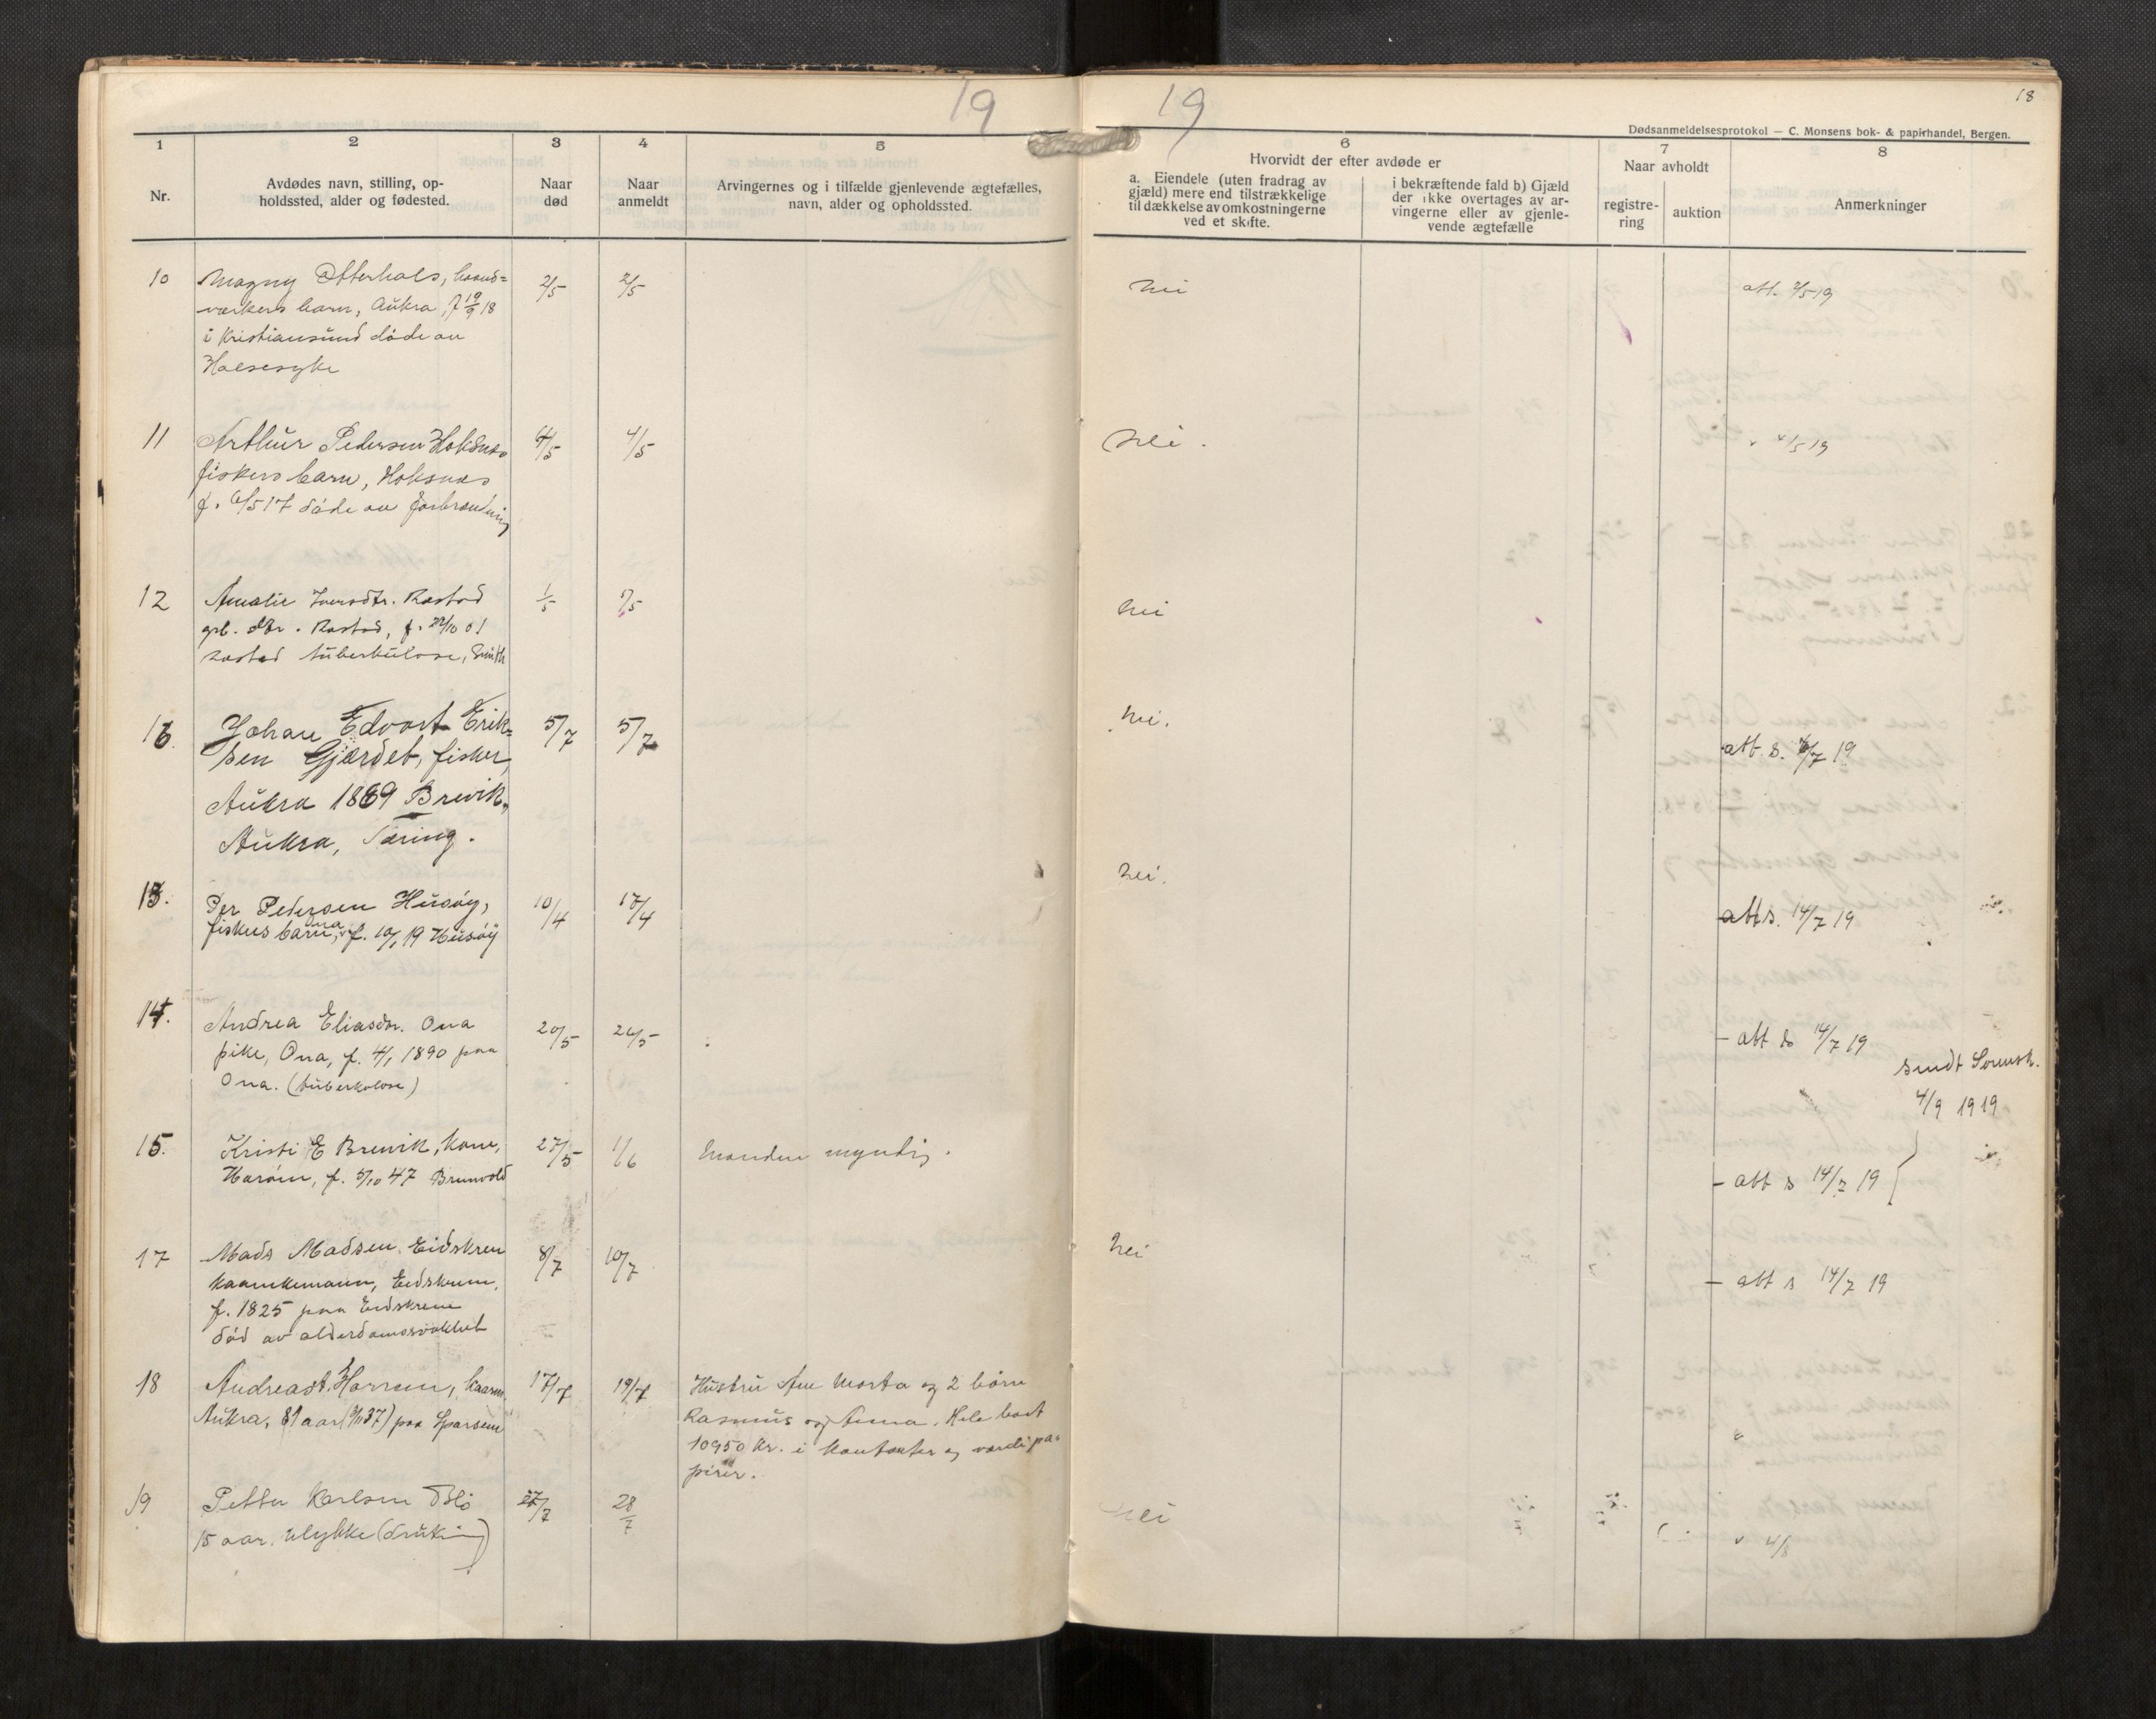 19
19
18
Dødsanmeldelsesprotokol — C. Monsens bok- & papirhandel, Bergen.
1
2
3
4
5
6
7
8
Nr.
Avdødes navn, stilling, op-
holdssted, alder og fødested.
Naar
død
Naar
anmeldt
Arvingernes og i tilfælde gjenlevende ægtefælles,
navn, alder og opholdssted.
Hvorvidt der efter avdøde er
a. Eiendele (uten fradrag av
gjæld) mere end tilstrækkelige
til dækkelse av omkostningerne
ved et skifte.
i bekræftende fald b) Gjæld
der ikke overtages av ar-
vingerne eller av gjenle-
vende ægtefælle
Naar avholdt
registre-
ring
auktion
Anmerkninger
10
Magny Otterhals, haand=
verkers barn, Aukra, f 19/9 18
i Kristiansund døde av
Halsesyke
2/5
2/5
nei
att. 2/5 19
11
Arthur Pedersen Hoksnes
fiskers barn, Hoksnes
f. 6/5 17 døde av forbrænding
4/5
4/5
Nei.
" 4/5 19
12
Amalie Iversdtr. Rastad
grb. dtr. Rastad, f. 01
Rastad tuberkulose,
1/5
5/5
nei
16.
Johan Edvart Erik=
sen Gjærdet, fisker,
Aukra 1869 Brevik,
Aukra, Tæring.
5/7
5/7
nei.
att. s. /7 19
13.
Per Pedersen Husøy,
fiskers barn, Ona, f. 10/1 19 Husøy
10/4
17/4
nei.
att s. 14/7 19
14.
Andrea Eliasdr. Ona
pike, Ona, f. 4/1 1890 paa
Ona. (tuberkolose)
20/5
26/5
- att s 14/7 19
sendt Sorensk.
4/9 1919
15.
Kristi E Brevik, kone,
Harøin, f. 5/10 47 Brunvold
27/5
1/6
Manden myndig.
- att s 14/7 19
17
Mads Madsen Eidskrem
kaarmand, Eidskrem,
f. 1825 paa Eidskrem
død av alderdomssvakhet
8/7
10/7
nei
- att s 14/7 19
18
Andreas T. Harnes, kaarm.
Aukra, 81 aar ( 37) paa Sporsem
17/7
19/7
Hustru Ane Marta og 2 børn
Rasmus og Anna. Hele boet
10950 kr. i kontanter og verdipa=
pirer.
19
Petter Karlsen Blø
15 aar. Ulykke (drukning)
27/7
28/7
nei
" 4/8